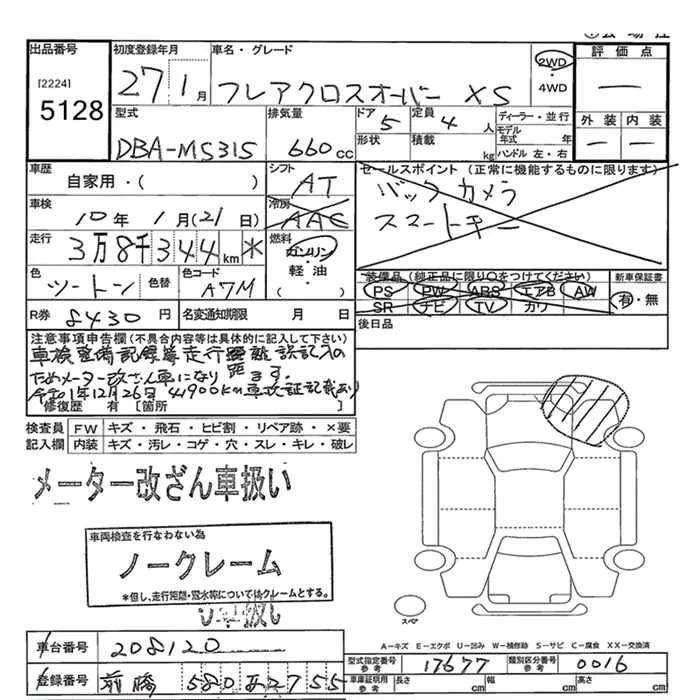 出品番号
[2224]
5128
初度登録年月
27 1月
車名・グレード
フレアクロスオーバー XS
2WD
・
4WD
評価点
―
外装 内装
― ―
型式
DBA-MS31S
排気量
660cc
ドア 5
形状
定員 4 人
積載 kg
ディーラー・並行
モデル年式 年
ハンドル 左・右
車歴
自家用・( )
シフト
AT
セールスポイント (正常に機能するものに限ります)
バックカメラ
スマートキー
車検
10年 1月(21日)
冷房
AAC
走行
3万8千344km *
燃料
ガソリン
・
軽油
( )
色
ツートン
色替
色コード
A7M
装備品(純正品に限り○をつけてください)
PS PW ABS エアB AW
SR ナビ TV カワ
新車保証書
有・無
R券 8430円
名変通知期限 月 日
後日品
注意事項申告欄(不具合内容等は具体的に記入して下さい)
車検整備記録簿走行距離誤記入の
ためメーター改ざん車になります。
令和1年12月26日 41900Km車検証記載あり
修復歴 有 [箇所 ]
検査員 FW キズ・飛石・ヒビ割・リペア跡・×要
記入欄 内装 キズ・汚レ・コゲ・穴・スレ・キレ・破レ
メーター改ざん車扱い
車両検査を行なわない為
ノークレーム
*但し、走行距離・冠水等についてはクレームとする。
スペア
A―キズ E―エクボ U―凹み W―補修跡 S―サビ C―腐食 XX―交換済
車台番号 208120
型式指定番号 参考 17677
類別区分番号 参考 0016
登録番号 前橋 580 あ2755
車庫証明用 参考 長さ cm 幅 cm 高さ cm